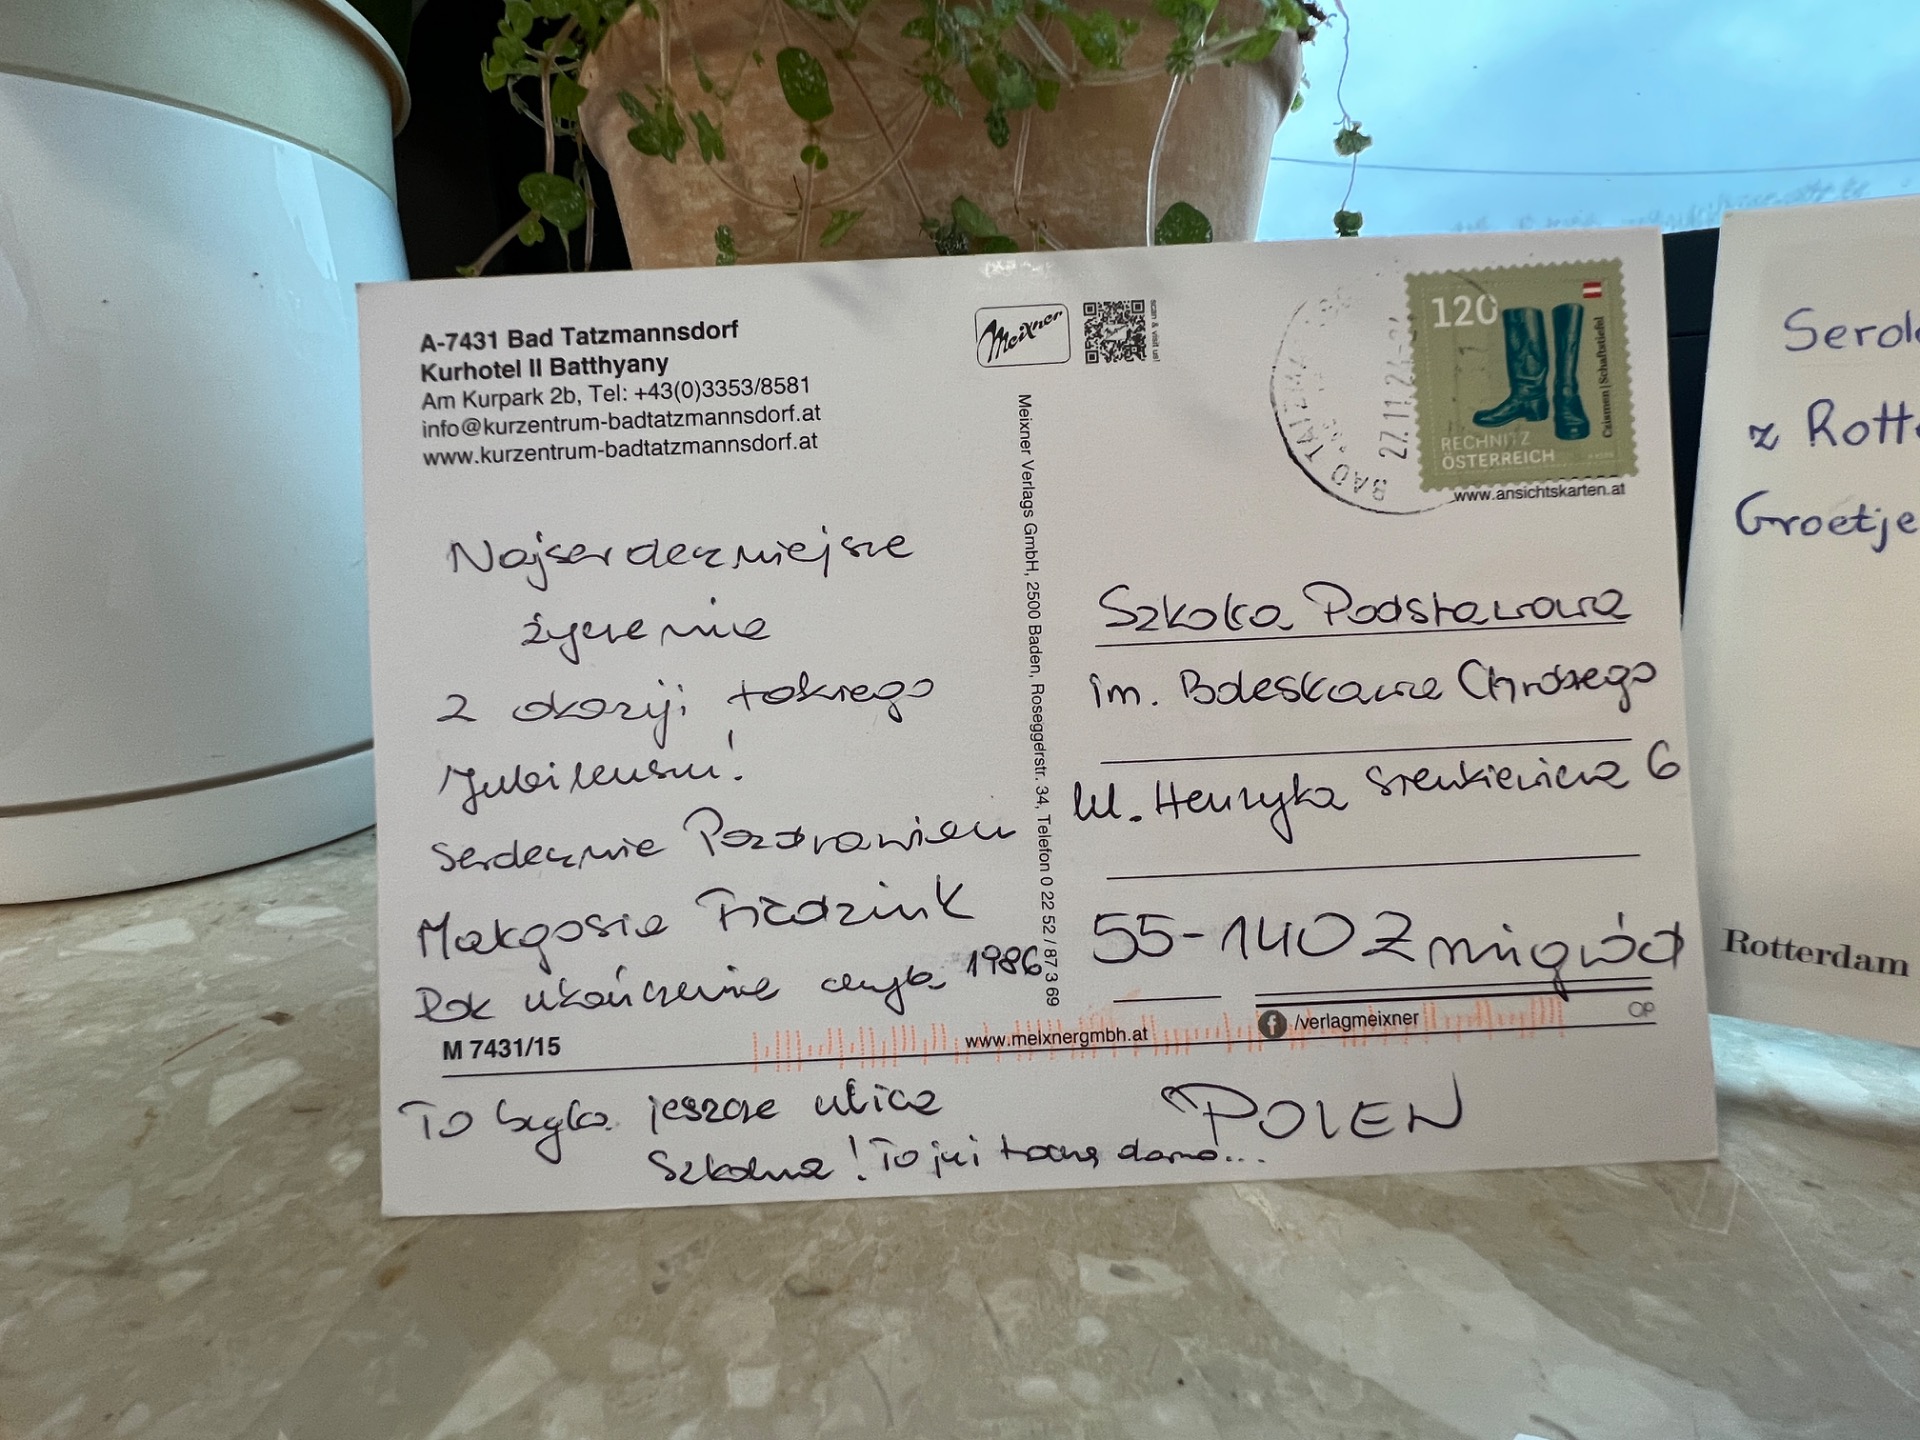 A-7431 Bad Tatzmannsdorf
Kurhotel II Batthyany
Am Kurpark 2b, Tel: +43(0)3353/8581
info@kurzentrum-badtatzmannsdorf.at
www.kurzentrum-badtatzmannsdorf.at
Meixner
scan & visit us!
27.11.24
120
Caismen | Schaftstiefel
RECHNITZ
ÖSTERREICH
www.ansichtskarten.at
Meixner Verlags GmbH, 2500 Baden, Roseggerstr. 34, Telefon 0 22 52 / 87 3 69
Najserdeczniejsze
życzenia
z okazji takiego
Jubileuszu!
Serdecznie Pozdrawiam
Małgosia
Rok ukończenia 1986
M 7431/15
To była jeszcze ulica
Szkolna! To już trochę dawno...
Szkoła Podstawowa
im. Bolesława Chrobrego
ul. Henryka Sienkiewicza 6
55-140 Żmigród
www.meixnergmbh.at
/verlagmeixner
POLEN
z Rott
Groetje
Rotterdam